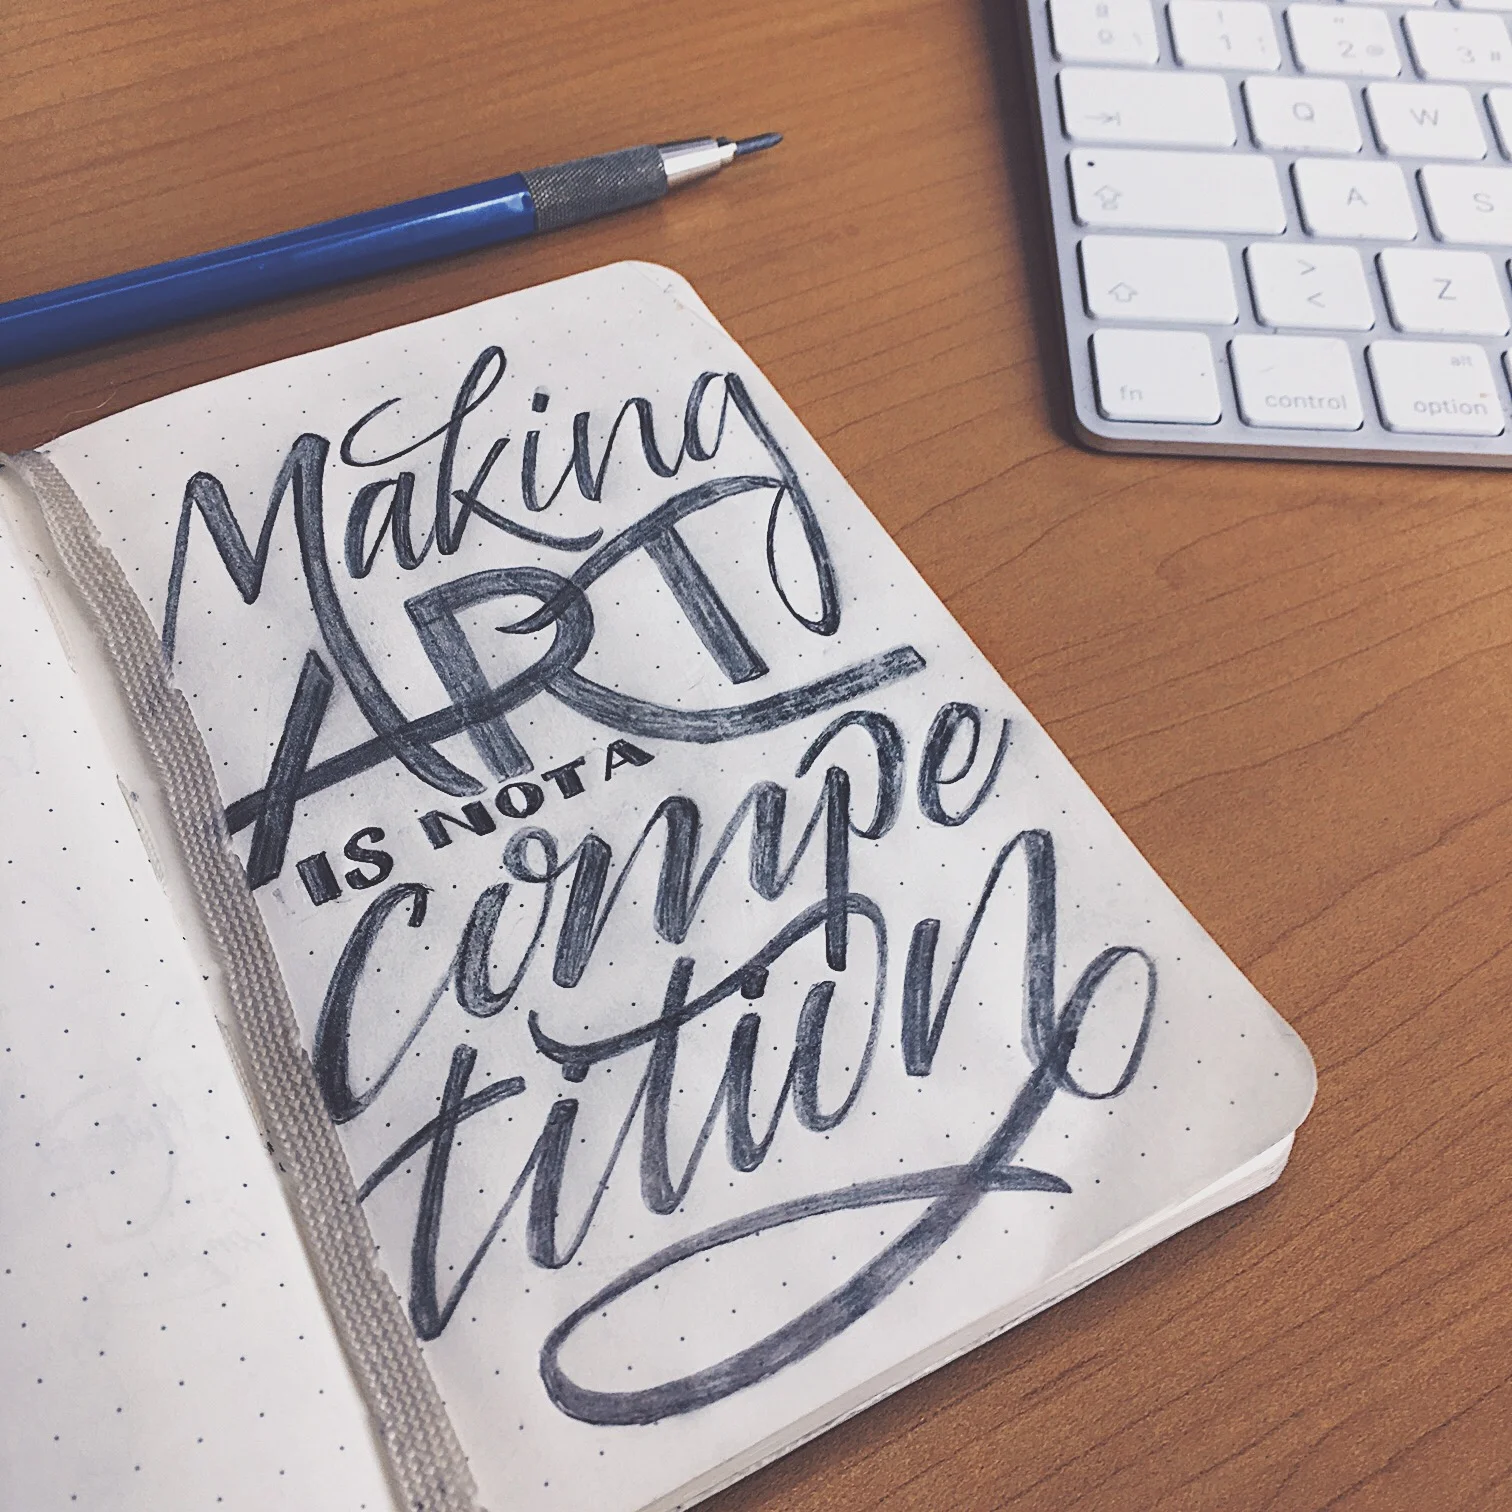 Making
ART
IS NOT A
compe
tition
Q W
A S
> Z
<
alt
fn control option